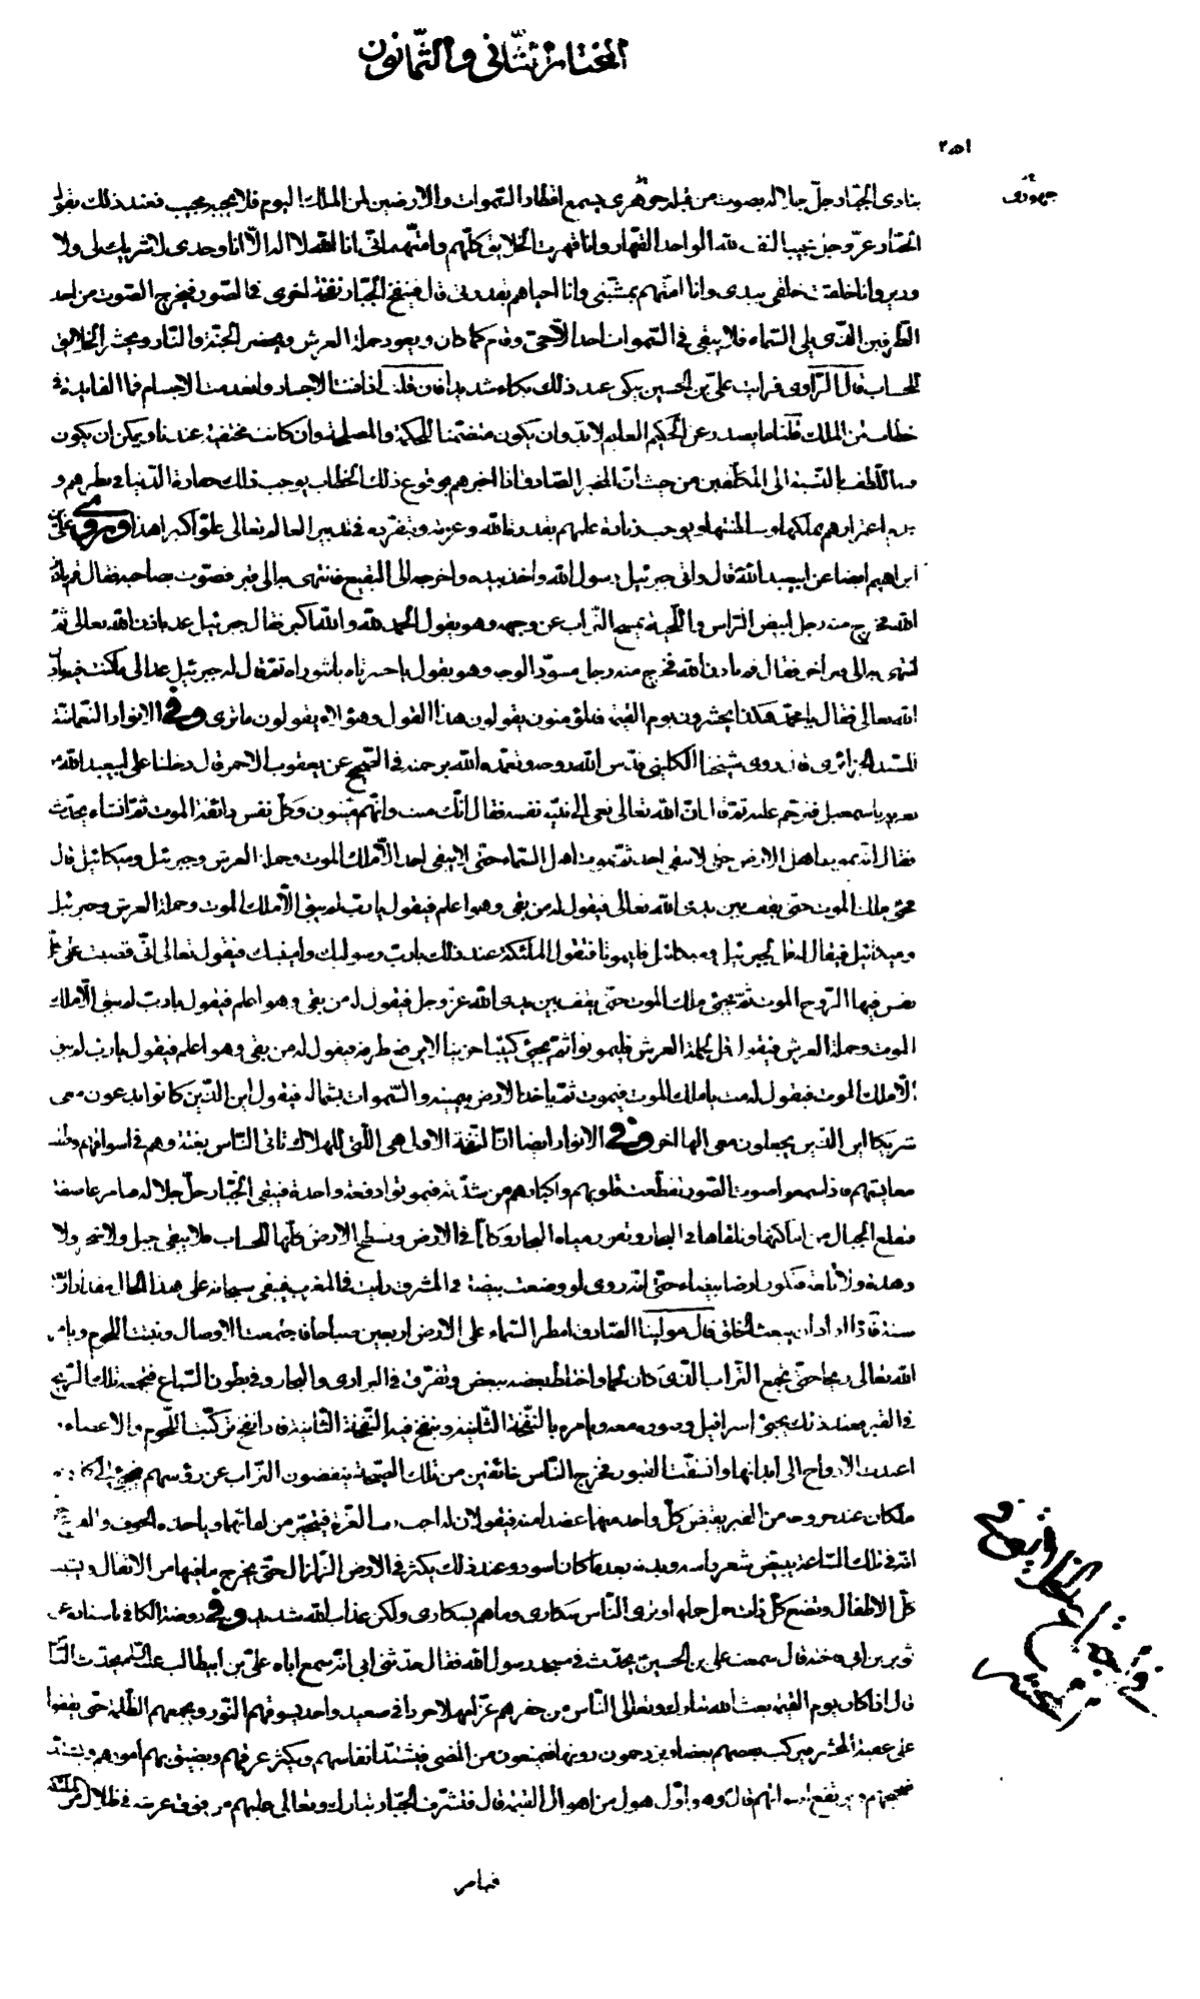 المختار الثاني والثمانون
٢٥١
جهوری
ينادى الجبّار جلّ جلاله بصوت من قبله جهوری يسمع اقطار السّموات والارضين لمن الملك اليوم فلا يجيبه مجيب فعند ذلك يقول
الجبّار عزّ وجلّ مجيبا لنفسه لله الواحد القهّار وانا قهرت الخلايق كلّهم وامتّهم انّى انا الله لا اله الّا انا وحدى لا شريك لى ولا
وزير وانا خلقت خلقى بيدى وانا امتّهم بمشيّتى وانا احييهم بقدرتى قال فينفخ الجبّار نفخة اخرى فى الصّور فيخرج الصّوت من احد
الطّرفين الّذى يلى السّماء فلا يبقى فى السّموات احد الّا حىّ وقام كما كان ويعود حملة العرش ويحضر الجنّة والنّار ويحشر الخلايق
للحساب قال الرّاوى فرايت علىّ بن الحسين يبكى عند ذلك بكاء شديدا فان قلت اذا فنت الاجساد وانعدمت الاجسام فما الفايدة فى
خطاب لمن الملك قلنا ما يصدر عن الحكيم العليم لا بدّ وان يكون متضمّنا للحكمة والمصلحة وان كانت مختفية عندنا ويمكن ان يكون
اللّطف بالنّسبة الى المكلّفين من حيث انّ المخبر الصّادق اذا اخبرهم بوقوع ذلك الخطاب يوجب ذلك حقارة الدّنيا فى نظرهم و
عدم اغترارهم بملكها وسلطنتها ويوجب زيادة علمهم بقدرة الله وعزّته وتفرّده فى تدبير العالم تعالى علوّا كبيرا هذا وروى علىّ بن
ابراهيم ايضا عن ابيعبد الله قال واتى جبرئيل رسول الله واخذ بيده واخرجه الى البقيع فانتهى به الى قبر فصوّت بصاحبه فقال قم باذن
الله فخرج منه رجل ابيض الرّاس واللّحية يمسح التّراب عن وجهه وهو يقول الحمد لله والله اكبر فقال جبرئيل عد باذن الله تعالى ثمّ
انتهى به الى قبر آخر فقال قم باذن الله فخرج منه رجل مسوّد الوجه وهو يقول يا حسرتاه يا ثبوراه ثمّ قال له جبرئيل عد الى ما كنت فيه باذن
الله تعالى فقال يا محمّد هكذا يحشرون يوم القيمة فالمؤمنون يقولون هذا القول وهؤلاء يقولون ما ترى وفى الانوار النّعمانيّة
للسيّد الجزائرى قال روى شيخنا الكلينى قدّس الله روحه وتغمّده الله برحمته فى الصّحيح عن يعقوب الاحمر قال دخلنا على ابيعبد الله
نعزّيه باسمعيل فترحّم عليه ثمّ قال انّ الله تعالى نعى الى نبيّه نفسه فقال انّك ميّت وانّهم ميّتون وكلّ نفس ذائقة الموت ثمّ انشاء يحدّث
فقال انّه يموت اهل الارض حتّى لا يبقى احد ثمّ يموت اهل السّماء حتّى لا يبقى احد الّا ملك الموت وحملة العرش وجبرئيل وميكائيل قال
فيجئ ملك الموت حتّى يقف بين يدى الله تعالى فيقول له من بقى وهو اعلم فيقول يا ربّ لم يبق الّا ملك الموت وحملة العرش وجبرئيل
وميكائيل فيقال له قل لجبرئيل وميكائيل فليموتا فتقول الملئكة عند ذلك يا ربّ رسوليك وامينيك فيقول تعالى انّى قضيت على كلّ
نفس فيها الرّوح الموت ثمّ يجئ ملك الموت حتّى يقف بين يدى الله عزّ وجلّ فيقول له من بقى وهو اعلم فيقول يا ربّ لم يبق الّا ملك
الموت وحملة العرش فيقول قل لحملة العرش فليموتوا ثمّ يجئ كئيبا حزينا لا يرفع طرفه فيقول له من بقى وهو اعلم فيقول يا ربّ لم يبق
الّا ملك الموت فيقول له مت يا ملك الموت فيموت ثمّ ياخذ الارض بيمينه والسّموات بشماله فيقول اين الّذين كانوا يدعون معى
شريكا اين الّذين يجعلون معى الها آخر وفى الانوار ايضا انّ النّفخة الاولى هى الّتى للهلاك تاتى النّاس بغتة وهم فى اسواقهم وطلب
معايشهم فاذا سمعوا صوت الصّور تقطّعت قلوبهم واكبادهم من شدّته فيموتوا دفعة واحدة فيبقى الجبّار جلّ جلاله فيامر عاصفة
فتقلع الجبال من اماكنها وتلقاها فى البحار وتفور مياه البحار وكلّما فى الارض وتسطح الارض كلّها للحساب فلا يبقى جبل ولا شجر ولا
وهدة ولا تلعة فتكون ارضا بيضاء حتّى انّه روى لو وضعت بيضة فى المشرق رايت فى المغرب فيبقى سبحانه على هذا الحال مقدار
سنة فاذا اراد ان يبعث الخلق قال مولينا الصّادق امطر السّماء على الارض اربعين صباحا فاجتمعت الاوصال ونبتت اللّحوم ويامر
الله تعالى ريحا حتّى تجمع التّراب الّذى كان لحما واختلط بعضه ببعض وتفرّق فى البرارى والبحار وفى بطون السّباع فتجمعه تلك الرّيح
فى القبر فعند ذلك يجئ اسرافيل وصوره معه ويامره بالنّفخة الثّانية وينفخ فيه النّفخة الثّانية فاذا نفخ تركّبت اللّحوم والاعضاء
اعيدت الارواح الى ابدانها وانشقّت القبور فخرج النّاس خائفين من تلك الصّيحة ينفضون التّراب عن رؤسهم فيجئ الى كلّ واحد
ملكان عند خروجه من القبر يقبض كلّ واحد منهما عضدا منه فيقولان له اجب ربّ العزّة فيتحيّر من لقائهما وياخذه الخوف والفزع
انّه فى تلك السّاعة يبيضّ شعر راسه وبدنه بعد ما كان اسود وعند ذلك يكثر فى الارض الزّلزال حتّى يخرج ما فيها من الاثقال ويشيب
كلّ الاطفال وتضع كلّ ذات حمل حملها وترى النّاس سكارى وما هم بسكارى ولكن عذاب الله شديد وفى روضة الكافى باسناده عن
ثوير بن ابى فاخته قال سمعت على بن الحسين يحدّث فى مسجد رسول الله فقال حدّثنى ابى انّه سمع اباه علىّ بن ابيطالب عليه السّلم يحدّث النّاس
قال اذا كان يوم القيمة بعث الله تبارك وتعالى النّاس من حفرهم عزّلا بهلا جردا فى صعيد واحد يسوقهم النّور ويجمعهم الظّلمة حتّى يقفوا
على عقبة المحشر فيركب بعضهم بعضا ويزدحمون دونها فيمنعون من المضى فيشتدّ انفاسهم ويكثر عرقهم ويضيق بهم امورهم ويشتدّ
ضجيجهم ويرتفع اصواتهم قال وهو اوّل هول من اهوال القيمة قال فيشرّف الجبّار تبارك وتعالى عليهم من فوق عرشه فى ظلال من الملئكة
فيامر